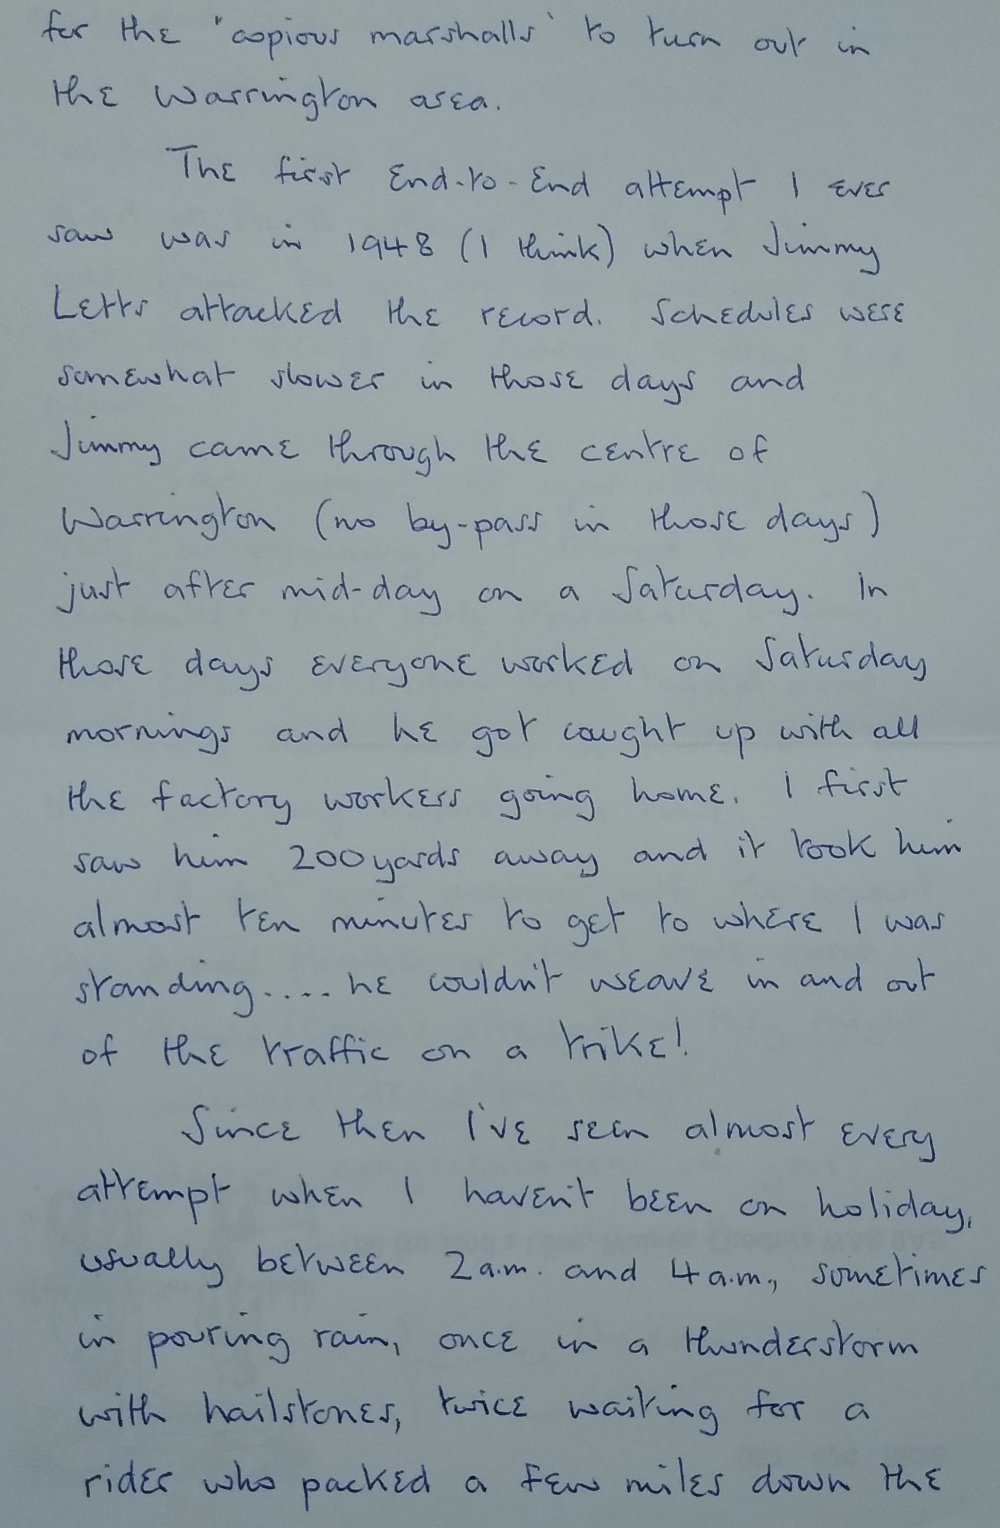 for the 'copious marshalls' to turn out in
the Warrington area.
The first End-to-End attempt I ever
saw was in 1948 (I think) when Jimmy
Letts attacked the record. Schedules were
somewhat slower in those days and
Jimmy came through the centre of
Warrington (no by-pass in those days)
just after mid-day on a Saturday. In
those days everyone worked on Saturday
mornings and he got caught up with all
the factory workers going home. I first
saw him 200 yards away and it took him
almost ten minutes to get to where I was
standing.... he couldn't weave in and out
of the traffic on a trike!
Since then I've seen almost every
attempt when I haven't been on holiday,
usually between 2 a.m. and 4 a.m., sometimes
in pouring rain, once in a thunderstorm
with hailstones, twice waiting for a
rider who packed a few miles down the